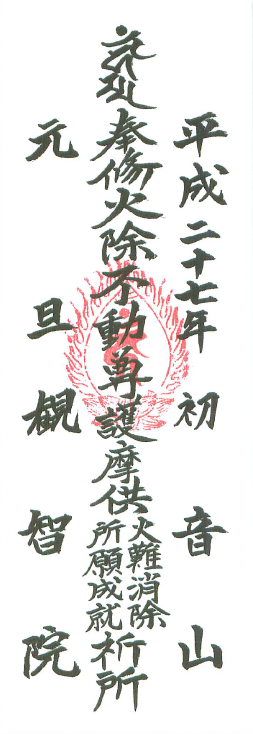 平成二十七年 初音山
奉修火除不動尊護摩供
火難消除
所願成就
祈所
元旦 観智院